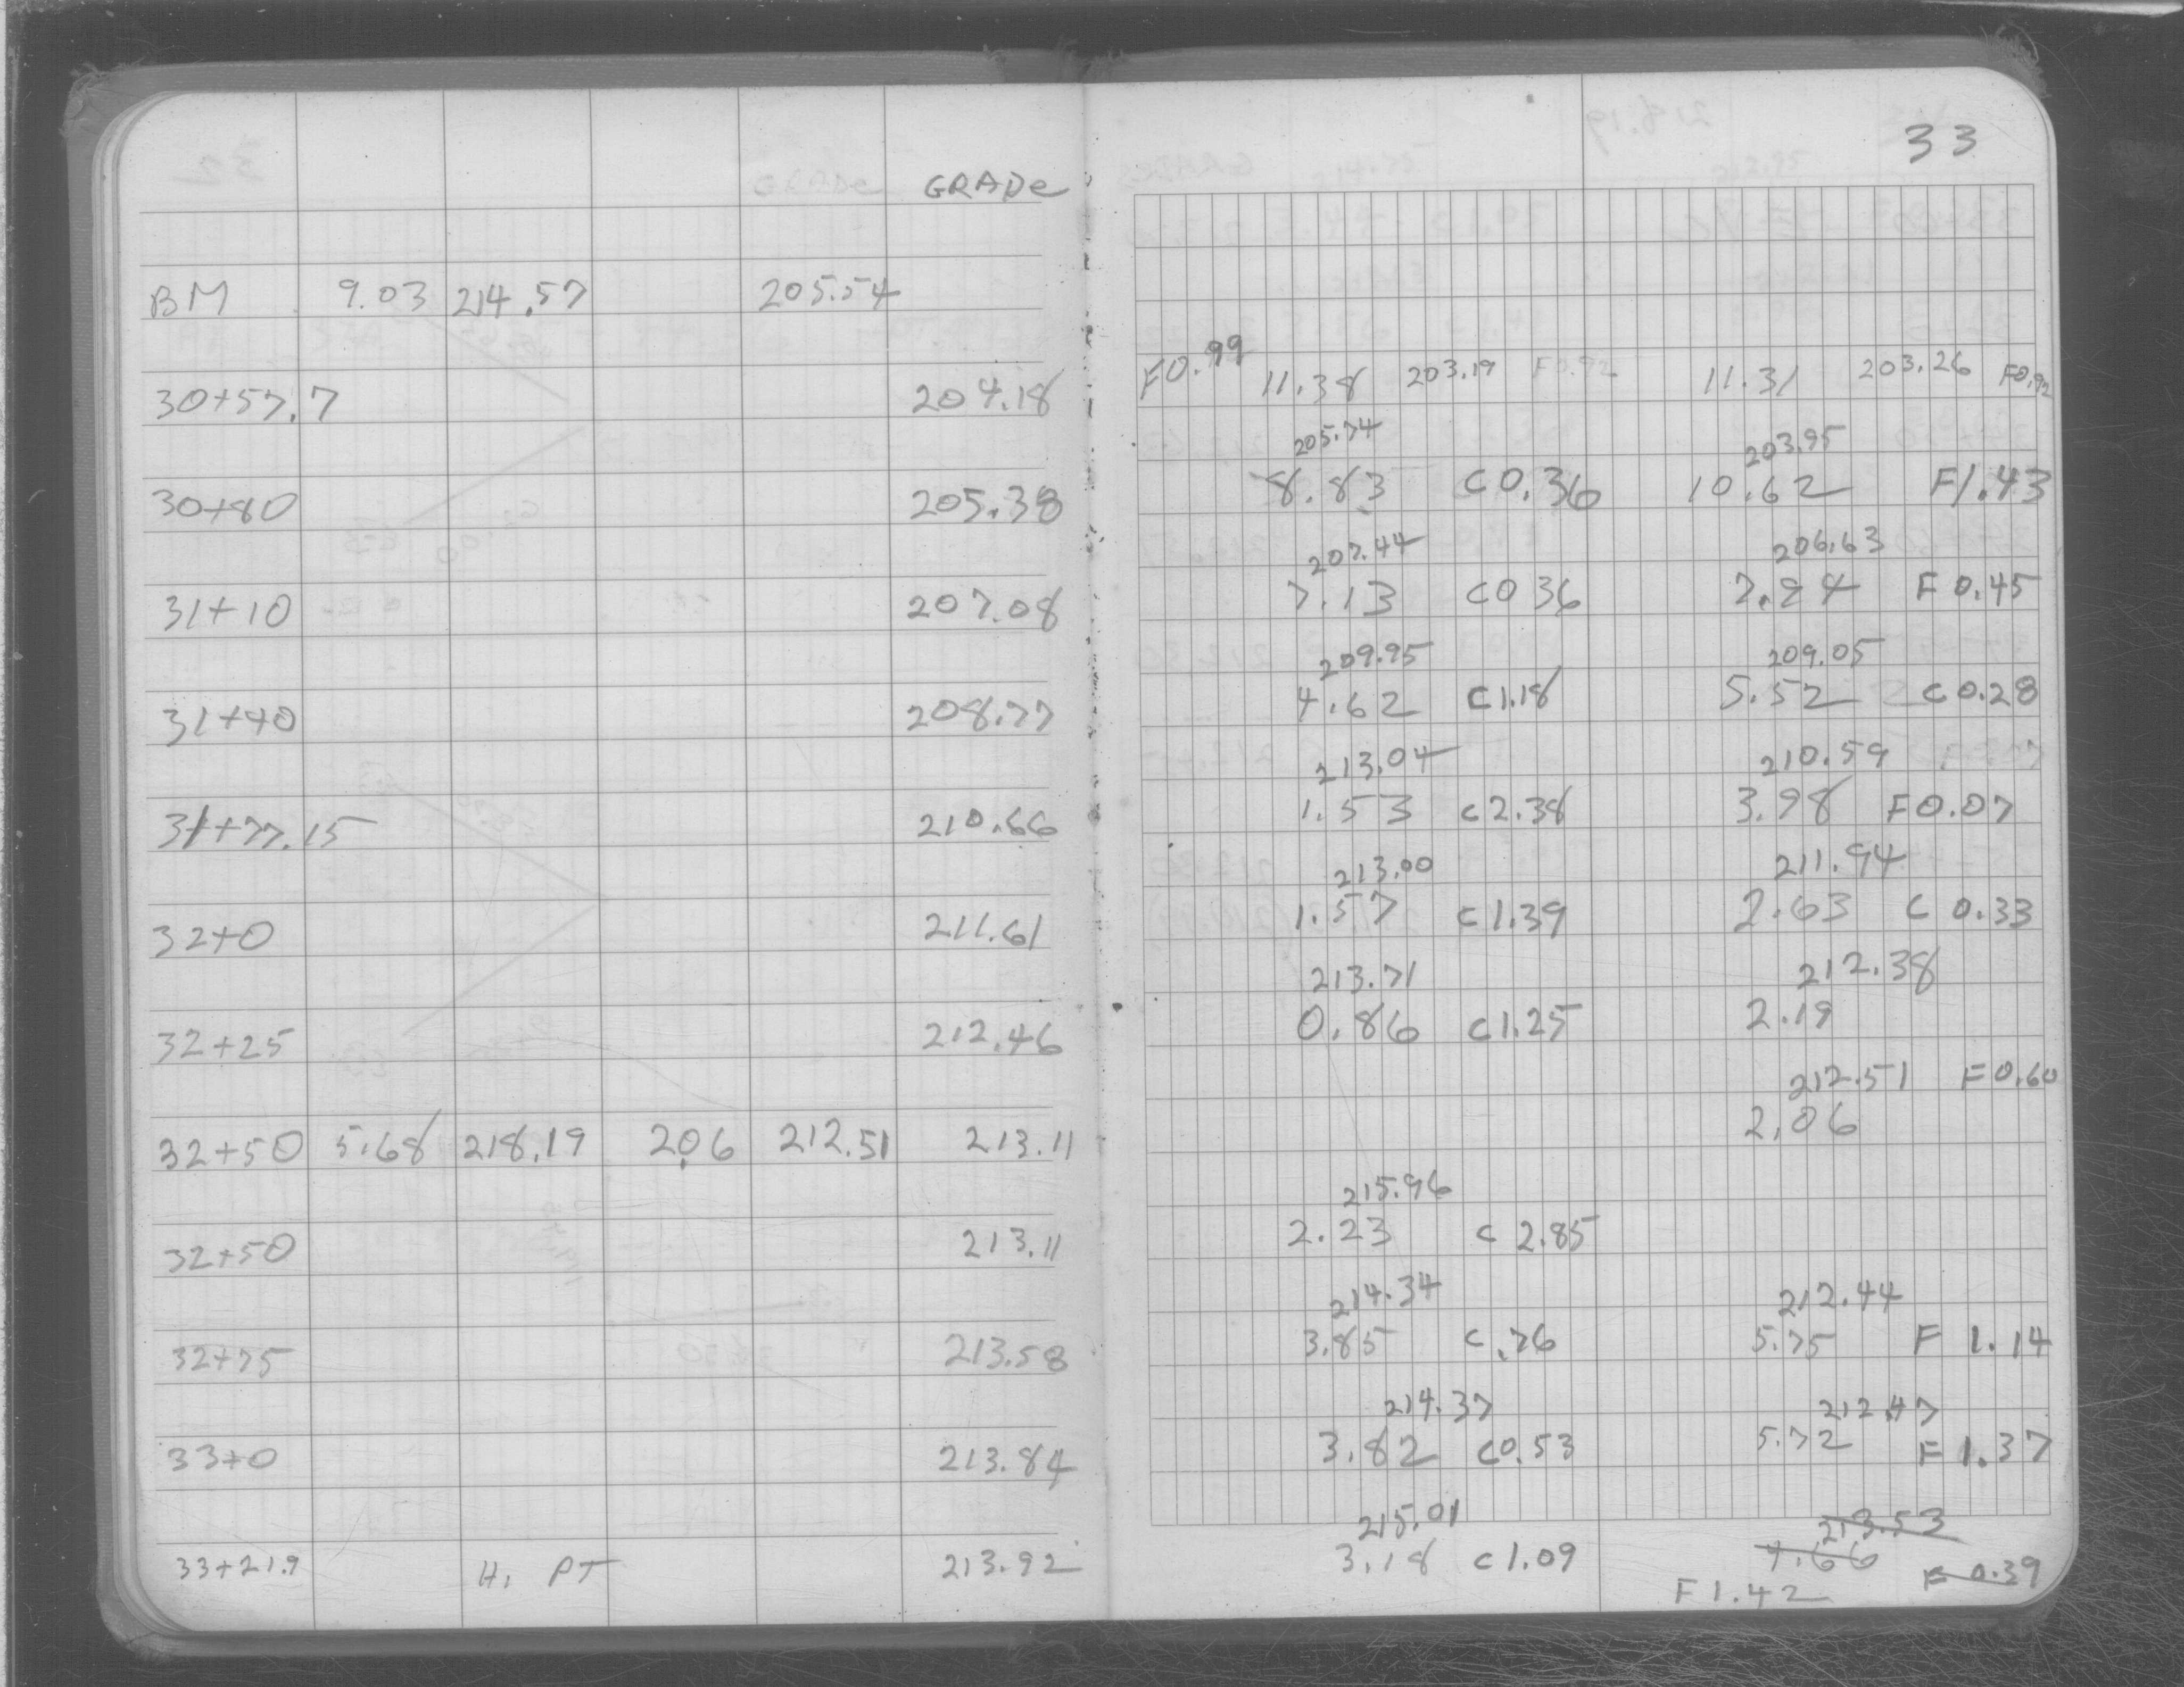 33
GRADe
BM 9.03 214.57 205.54
F0.99 11.38 203.19 F0.92 11.31 203.26 F0.92
30+57.7 204.18
205.74 203.95
30+80 205.38 8.83 C0.36 10.62 F1.43
207.44 206.63
31+10 207.08 7.13 C0 36 7.94 F 0.45
209.95 209.05
31+40 208.77 4.62 C1.18 5.52 C0.28
213.04 210.59
31+77.15 210.66 1.53 C2.38 3.98 F0.07
213.00 211.94
32+0 211.61 1.57 C1.39 2.63 C 0.33
213.71 212.38
32+25 212.46 0.86 C1.25 2.19
212.51 F0.60
32+50 5.68 218.19 2.06 212.51 213.11 2.06
215.96
32+50 213.11 2.23 C 2.85
214.34 212.44
32+75 213.58 3.85 C.76 5.75 F 1.14
214.37 212.47
33+0 213.84 3.82 C0.53 5.72 F 1.37
215.01 213.53
33+21.9 HI PT 213.92 3.18 C1.09 4.66 F 0.39
F1.42